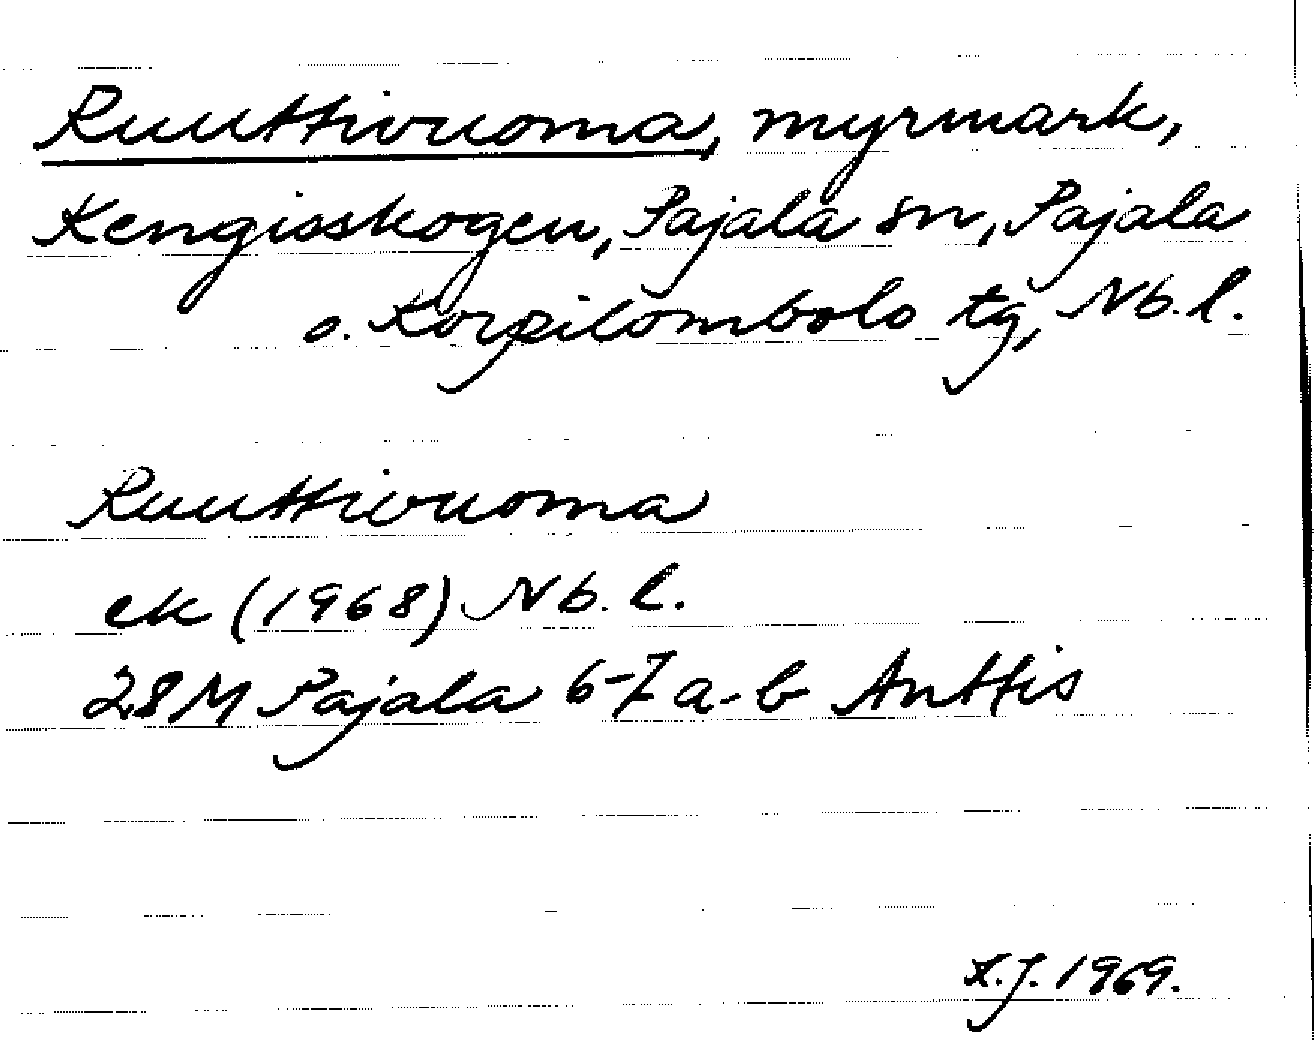 Ruuttivuoma, myrmark,
Kengisskogen, Pajala sn, Pajala
o. Korpilombolo tg, Nb. l.
Ruuttivuoma
ek (1968) Nb. l.
28M Pajala 6-7 a-b Anttis
K.J. 1969.